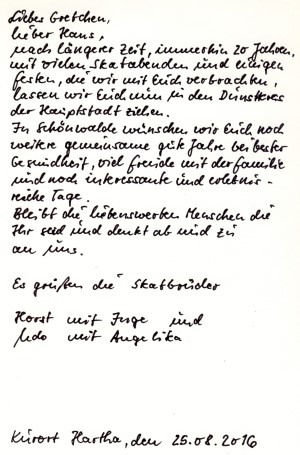 Liebes Gretchen,
lieber Hans,
nach längerer Zeit, immerhin 20 Jahren,
mit vielen Skatabenden und einigen
Festen, die wir mit Euch verbrachten,
lassen wir Euch nun in den Dunstkreis
der Hauptstadt ziehen.
In Schönwalde wünschen wir Euch noch
weitere gemeinsame gute Jahre bei bester
Gesundheit, viel Freude mit der Familie
und noch interessante und erlebnis-
reiche Tage.
Bleibt die liebenswerten Menschen die
Ihr seid und denkt ab und zu
an uns.
Es grüßen die Skatbrüder
Horst mit Inge und
Udo mit Angelika
Kurort Hartha, den 25.08.2016